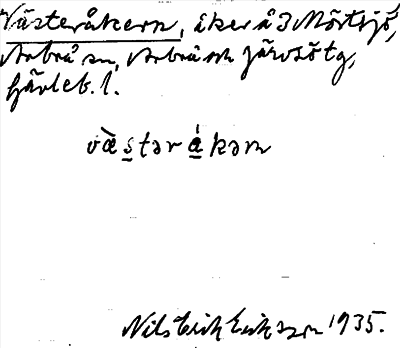 Västeråkern, åker å 3 Mörtsjö,
Arbrå sn, Arbrå och Järvsö tg,
Gävleb. l.
væ̀stərákəɳ
Nils Erik Eriksson 1935.